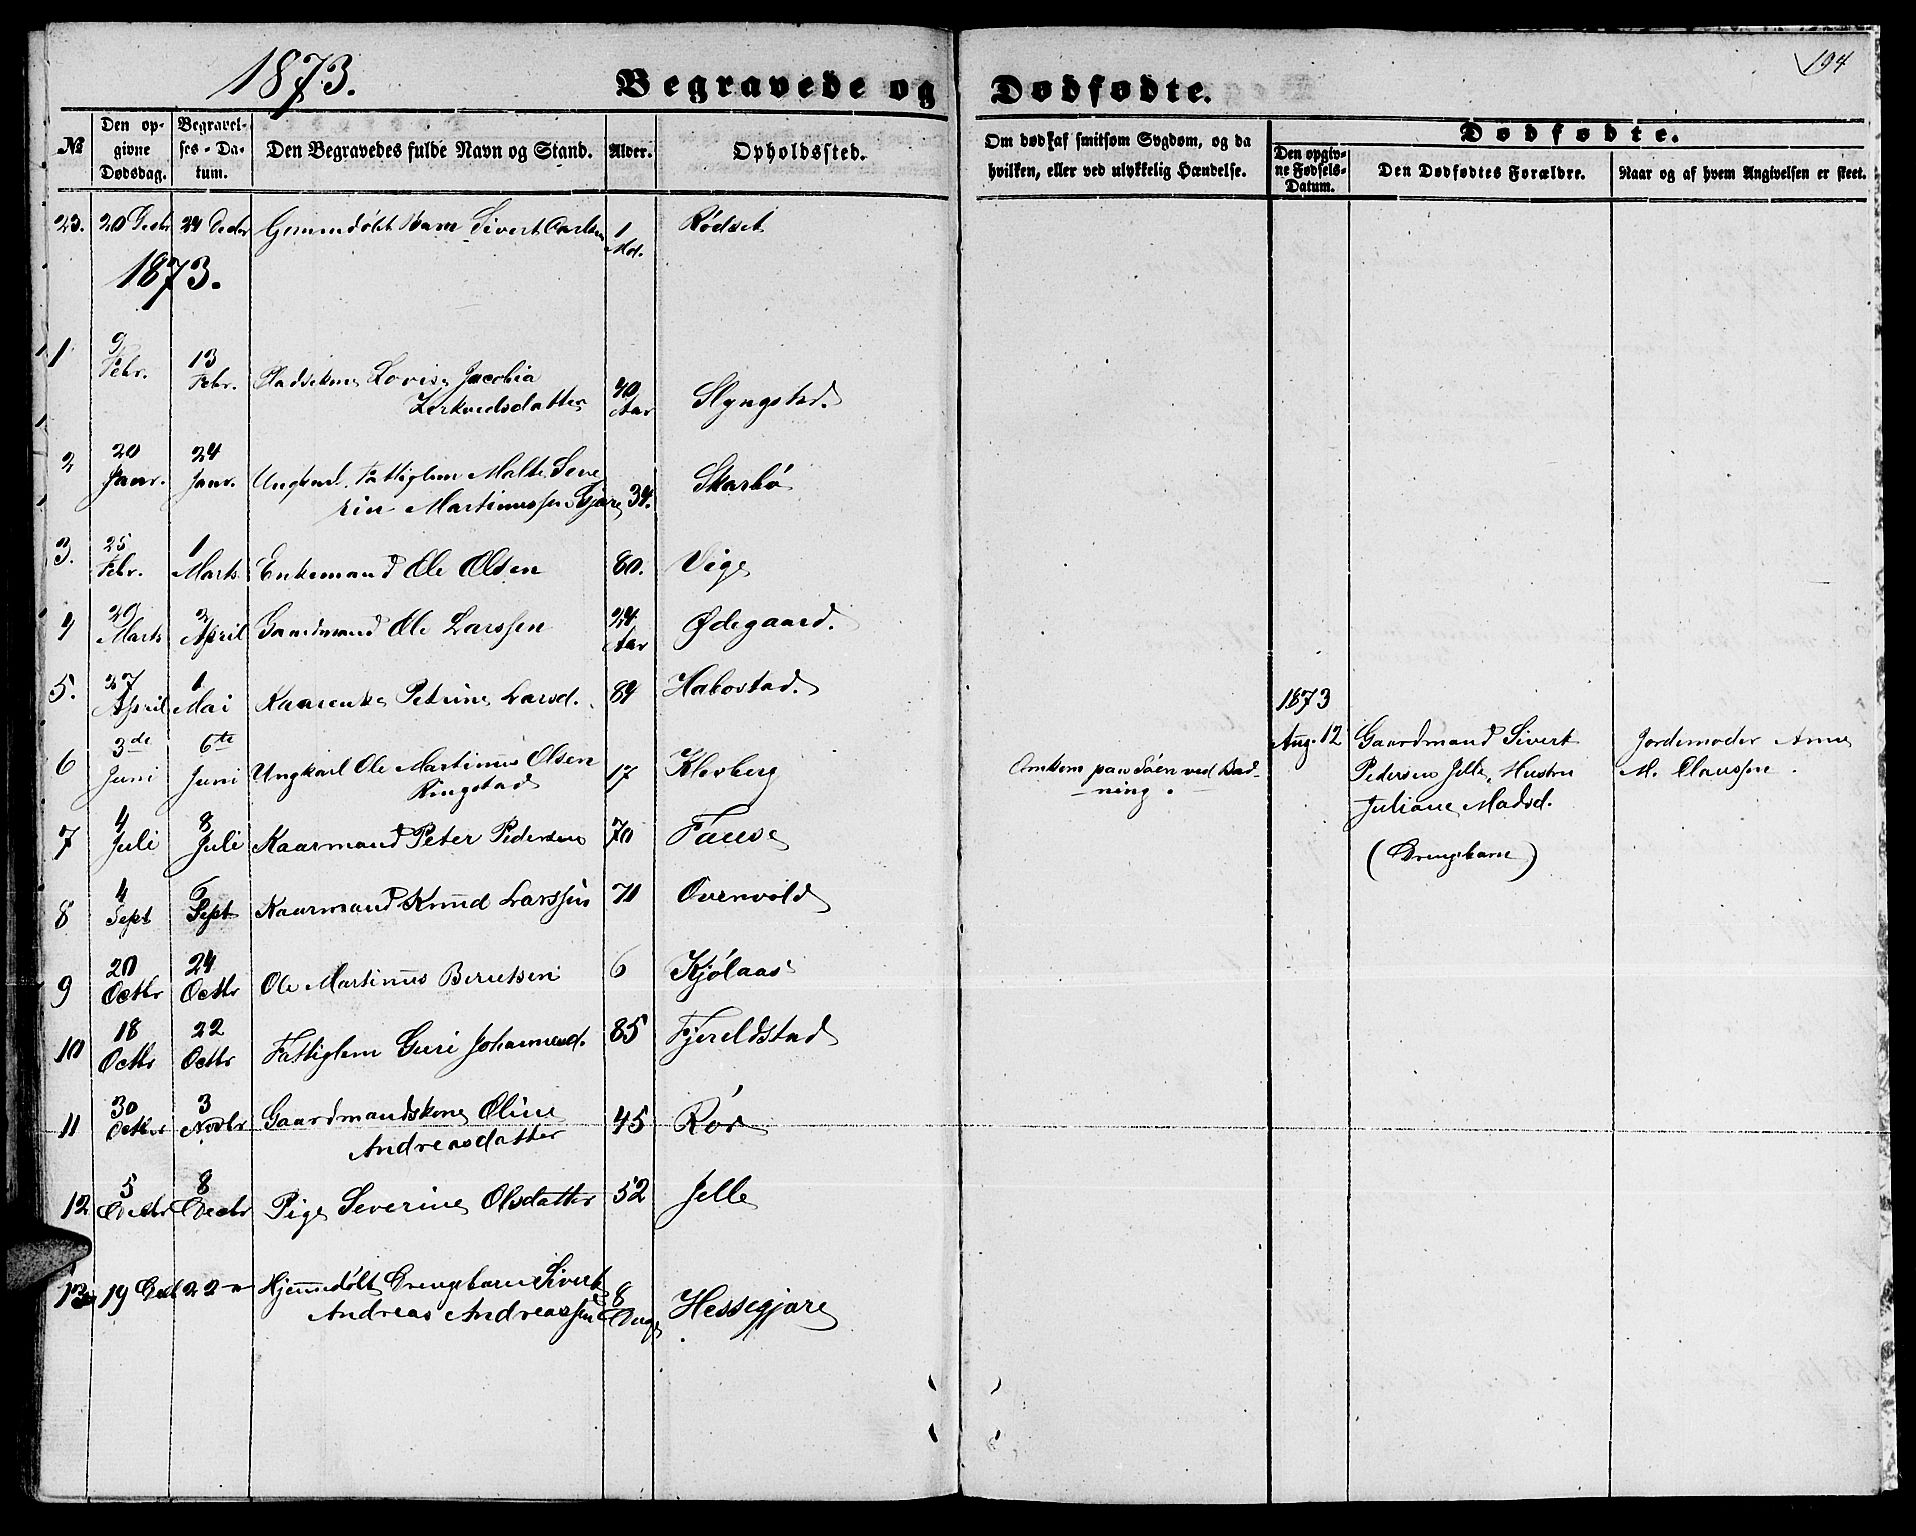 1873.
Begravede og Dødfødte.
194
№
Den opgivne Dødsdag.
Begravelses-Datum.
Den Begravedes fulde Navn og Stand.
Alder.
Opholdssted.
Om død af smitsom Sygdom, og da hvilken, eller ved ulykkelig Hændelse.
Dødfødte.
Den opgivne Fødsels-Datum.
Den Dødfødtes Forældre.
Naar og af hvem Angivelsen er skeet.
23. 20 Decbr 24 Decbr Hjemmedøbt Barn Sivert 1 Md. Rødset
1873.
1 9 Febr. 13 Febr. Pladsekone Lovise Jacobia
datter 40 Aar Slyngstad.
2 20 Janr. 24 Janr. Ungkarl, Fattiglem Malte Seve
rin Martinussen 34. Skarbö
3. 25 Febr. 1 Marts Enkemand Ole Olsen 80. Vige
4 29 Marts 2 April Gaardmand Ole Larssen 24 Aar Ødegaard.
5. 27 April 1 Mai Kaarenke Petrine Larsd. 84 Habostad.
6 3de Juni 6te Juni Ungkarl Ole Martinus Olsen
Ringstad 17 Klovberg
Omkom paa Söen ved Bad-
ning.
7 4 Juli 8 Juli Kaarmand Peter Pedersen 70 Fause
8 4 Sept Sept Kaarmand Knud Larssen 71 Overvold
9 20 Octbr 24 Octbr Ole Martinus Berntsen 6 Kjölaas
10 18 Octbr 22 Octbr Fattiglem Guri Johannesd. 85 Fjeldstad
11 30 Octbr 3 Novbr Gaardmandskone Oline
Andreasdatter 45 Rör
12 5 Decbr 8 Decbr Pige Severine Olsdatter 52 Jelle
13 19 Decb 22 " Hjemmedöbt Drengebarn Sivert
Andreas Andreassen 8 Dage Hessegjære
1873
Aug. 12 Gaardmand Sivert
Pedersen Jelle, Hustru
Juliane Madsd.
(Drengebarn)
Jordemoder Anne
M. Claussen.